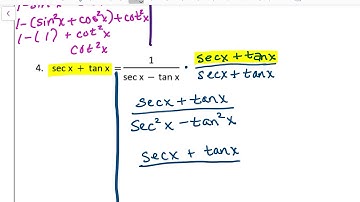 1-sin²x
1-(sin²x+cos²x)+cot²x
1-(1)+cot²x
cot²x
4. sec x + tan x = 1 / sec x − tan x · secx+tanx / secx+tanx
secx+tanx / sec²x-tan²x
secx + tanx